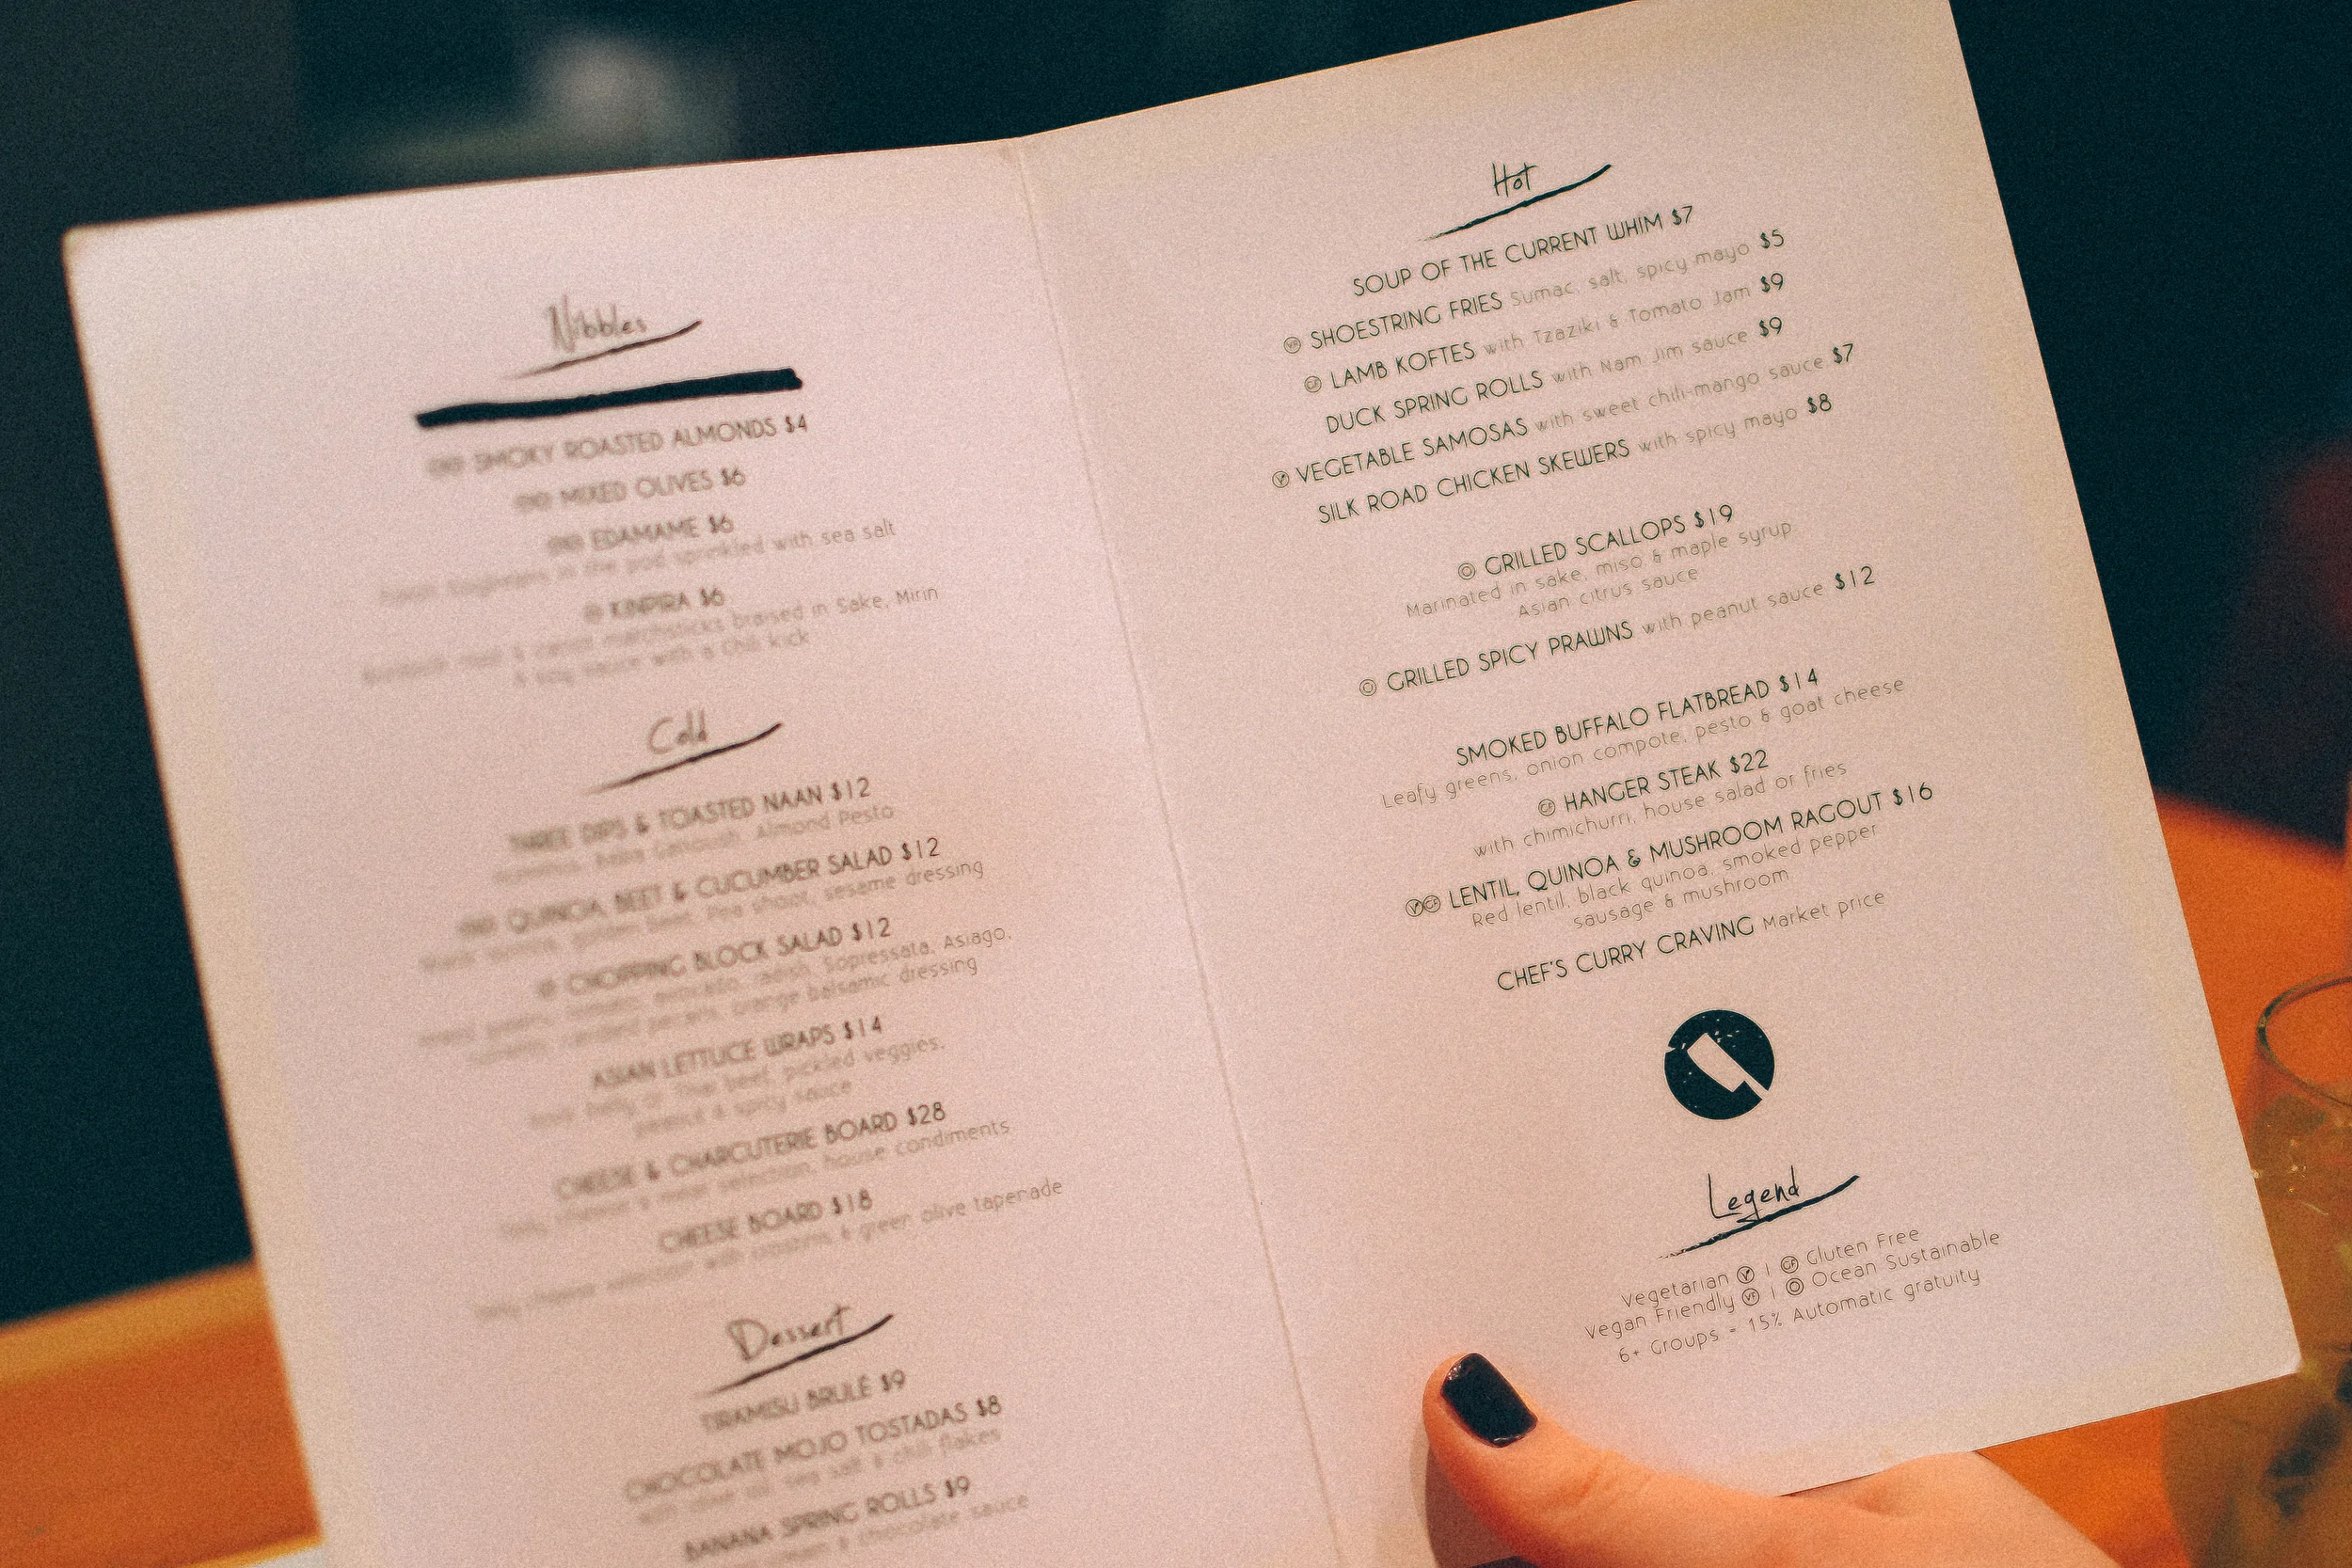 Nibbles
SMOKY ROASTED ALMONDS $4
MIXED OLIVES $6
EDAMAME $6
soybeans in the pod sprinkled with sea salt
KINPIRA $6
root & carrot matchsticks braised in Sake, Mirin
& soy sauce with a Chili kick
Cold
THREE DIPS & TOASTED NAAN $12
Almond Pesto
QUINOA, BEET & CUCUMBER SALAD $12
Black quinoa, golden beet, Pea shoot, sesame dressing
CHOPPING BLOCK SALAD $12
greens, tomato, avocado, radish, Sopressata, Asiago,
candied pecans, orange balsamic dressing
ASIAN LETTUCE WRAPS $14
Pork belly or Thai beef, pickled veggies,
peanut & spicy sauce
CHEESE & CHARCUTERIE BOARD $28
cheese & meat selection, house condiments
CHEESE BOARD $18
cheese selection with crostinis & green olive tapenade
Dessert
TIRAMISU BRULÉ $9
CHOCOLATE MOJO TOSTADAS $8
with olive oil, sea salt & chili flakes
BANANA SPRING ROLLS $9
& chocolate sauce
Hot
SOUP OF THE CURRENT WHIM $7
VF SHOESTRING FRIES Sumac, salt, spicy mayo $5
GF LAMB KOFTES with Tzaziki & Tomato Jam $9
DUCK SPRING ROLLS with Nam Jim sauce $9
V VEGETABLE SAMOSAS with sweet chili-mango sauce $7
SILK ROAD CHICKEN SKEWERS with spicy mayo $8
GRILLED SCALLOPS $19
Marinated in sake, miso & maple syrup.
Asian citrus sauce
GRILLED SPICY PRAWNS with peanut sauce $12
SMOKED BUFFALO FLATBREAD $14
Leafy greens, onion compote, pesto & goat cheese
GF HANGER STEAK $22
with chimichurri, house salad or fries
V GF LENTIL, QUINOA & MUSHROOM RAGOUT $16
Red lentil, black quinoa, smoked pepper
sausage & mushroom
CHEF'S CURRY CRAVING Market price
Legend
Vegetarian V | GF Gluten Free
Vegan Friendly VF | O Ocean Sustainable
6+ Groups - 15% Automatic gratuity